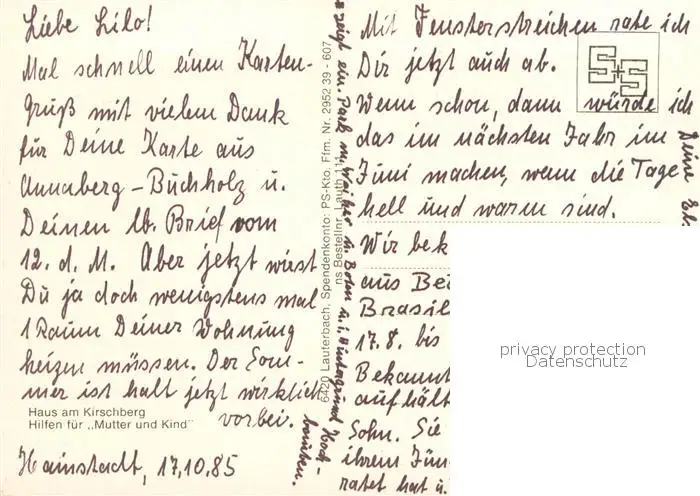 Liebe Lilo!
Mal schnell einen Karten-
gruß mit vielem Dank
für Deine Karte aus
Annaberg-Buchholz u.
Deinen lb. Brief vom
12. d. M. Aber jetzt wirst
Du ja doch wenigstens mal
1 Raum Deiner Wohnung
heizen müssen. Der Som-
mer ist halt jetzt wirklich
vorbei.
Haus am Kirschberg
Hilfen für „Mutter und Kind"
Hainstadt, 17.10.85
6420 Lauterbach, Spendenkonto: PS-Kto. Ffm. Nr. 2952 39 - 607
ns Bestellnr. Lauth
zeigt ein. Park m. Weiher u. Boten u. i. Hintergrund Hoch-
bauten.
Mit Fensterstreichen rate ich
Dir jetzt auch ab.
Wenn schon, dann würde ich
das im nächsten Jahr im
Juni machen, wenn die Tage
hell und warm sind.
Wir bek
aus Be
Brasil
17.8. bis
Bekannt
aufhält
Sohn. Sie
ihrem
ratet hat u.
Deine
S+S
privacy protection
Datenschutz